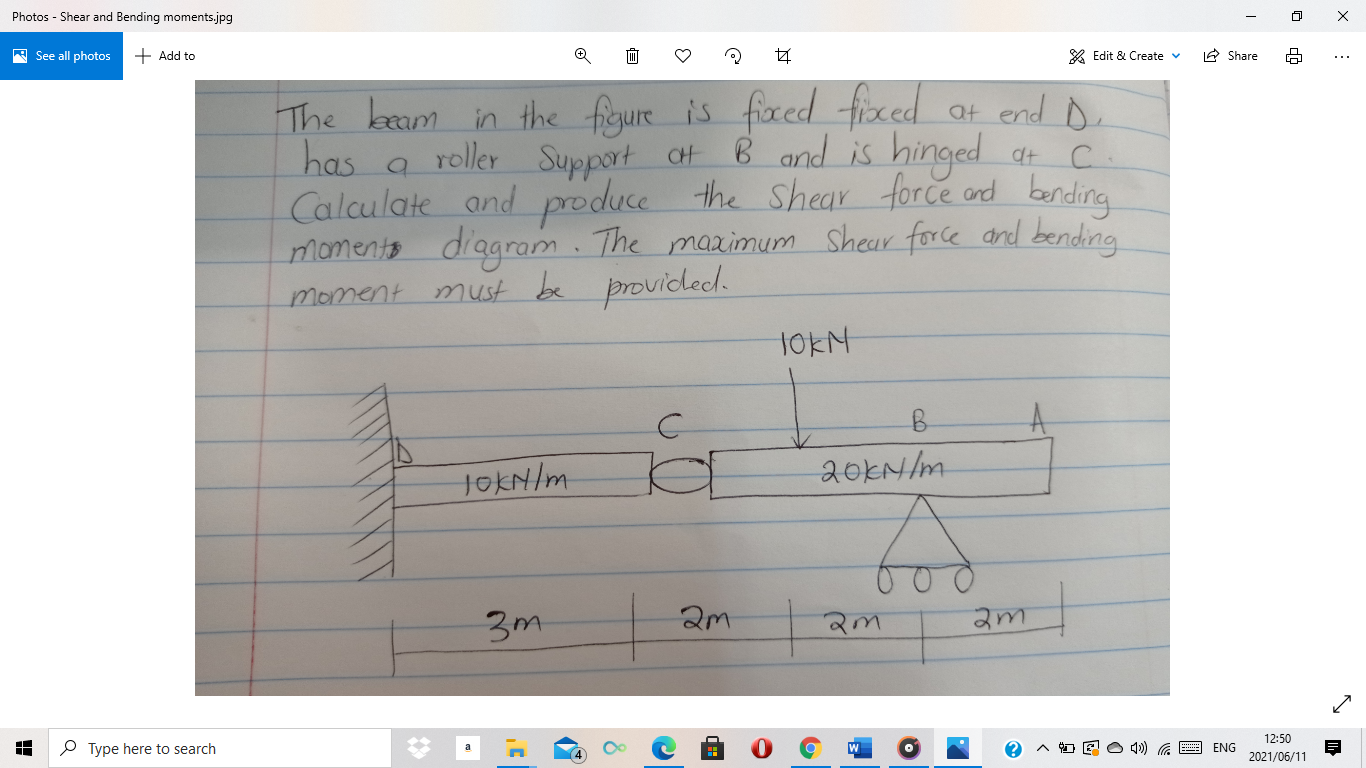 Photos - Shear and Bending moments.jpg
See all photos
Add to
Edit & Create
Share
The beam in the figure is fixed fixed at end D,
has a roller support at B and is hinged at C.
Calculate and produce the shear force and bending
moment diagram. The maximum shear force and bending
moment must be provided.
10kN
C
B
A
D
10kN/m
20kN/m
3m
2m
2m
2m
Type here to search
a
4
W
ENG
12:50
2021/06/11